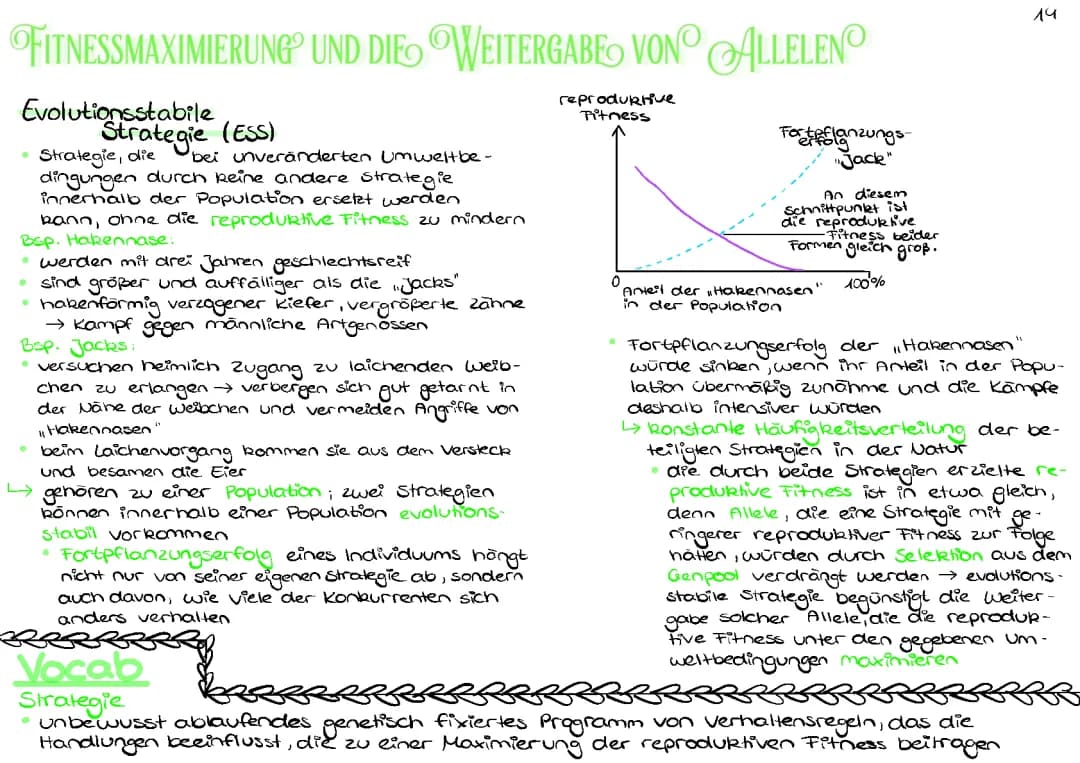 14
FITNESSMAXIMIERUNG UND DIE WEITERGABE VON ALLELEN
Evolutionsstabile
Strategie (ESS)
• Strategie, die bei unveränderten Umweltbe-
dingungen durch keine andere Strategie
innerhalb der Population ersetzt werden
kann, ohne die reproduktive Fitness zu mindern
Bsp. Hakennase:
• werden mit drei Jahren geschlechtsreif
• sind größer und auffälliger als die „Jacks"
• hakenförmig verzogener Kiefer, vergrößerte Zähne
→ Kampf gegen männliche Artgenossen
Bsp. Jacks:
• versuchen heimlich Zugang zu laichenden Weib-
chen zu erlangen → verbergen sich gut getarnt in
der Nähe der Weibchen und vermeiden Angriffe von
„Hakennasen"
• beim Laichenvorgang kommen sie aus dem Versteck
und besamen die Eier
↳ gehören zu einer Population; zwei Strategien
können innerhalb einer Population evolutions-
stabil vorkommen
• Fortpflanzungserfolg eines Individuums hängt
nicht nur von seiner eigenen Strategie ab, sondern
auch davon, wie viele der Konkurrenten sich
anders verhalten
reproduktive
Fitness
Fortpflanzungs-
erfolg
„Jack"
An diesem
Schnittpunkt ist
die reproduktive
Fitness beider
Formen gleich groß.
0
100%
Anteil der „Hakennasen"
in der Population
• Fortpflanzungserfolg der „Hakennasen"
würde sinken, wenn ihr Anteil in der Popu-
lation übermäßig zunähme und die Kämpfe
deshalb intensiver würden
↳ konstante Häufigkeitsverteilung der be-
teiligten Strategien in der Natur
• die durch beide Strategien erzielte re-
produktive Fitness ist in etwa gleich,
denn Allele, die eine Strategie mit ge-
ringerer reproduktiver Fitness zur Folge
hätten, würden durch Selektion aus dem
Genpool verdrängt werden → evolutions-
stabile Strategie begünstigt die Weiter-
gabe solcher Allele, die die reproduk-
tive Fitness unter den gegebenen Um-
weltbedingungen maximieren
Vocab
Strategie
• unbewusst ablaufendes genetisch fixiertes Programm von Verhaltensregeln, das die
Handlungen beeinflusst, die zu einer Maximierung der reproduktiven Fitness beitragen